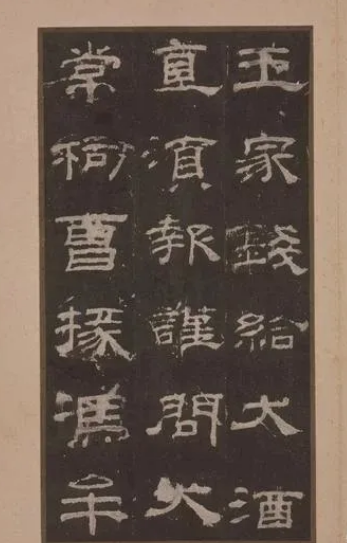 王家錢給大酒
直須報謹問大
常祠曹掾馮牟